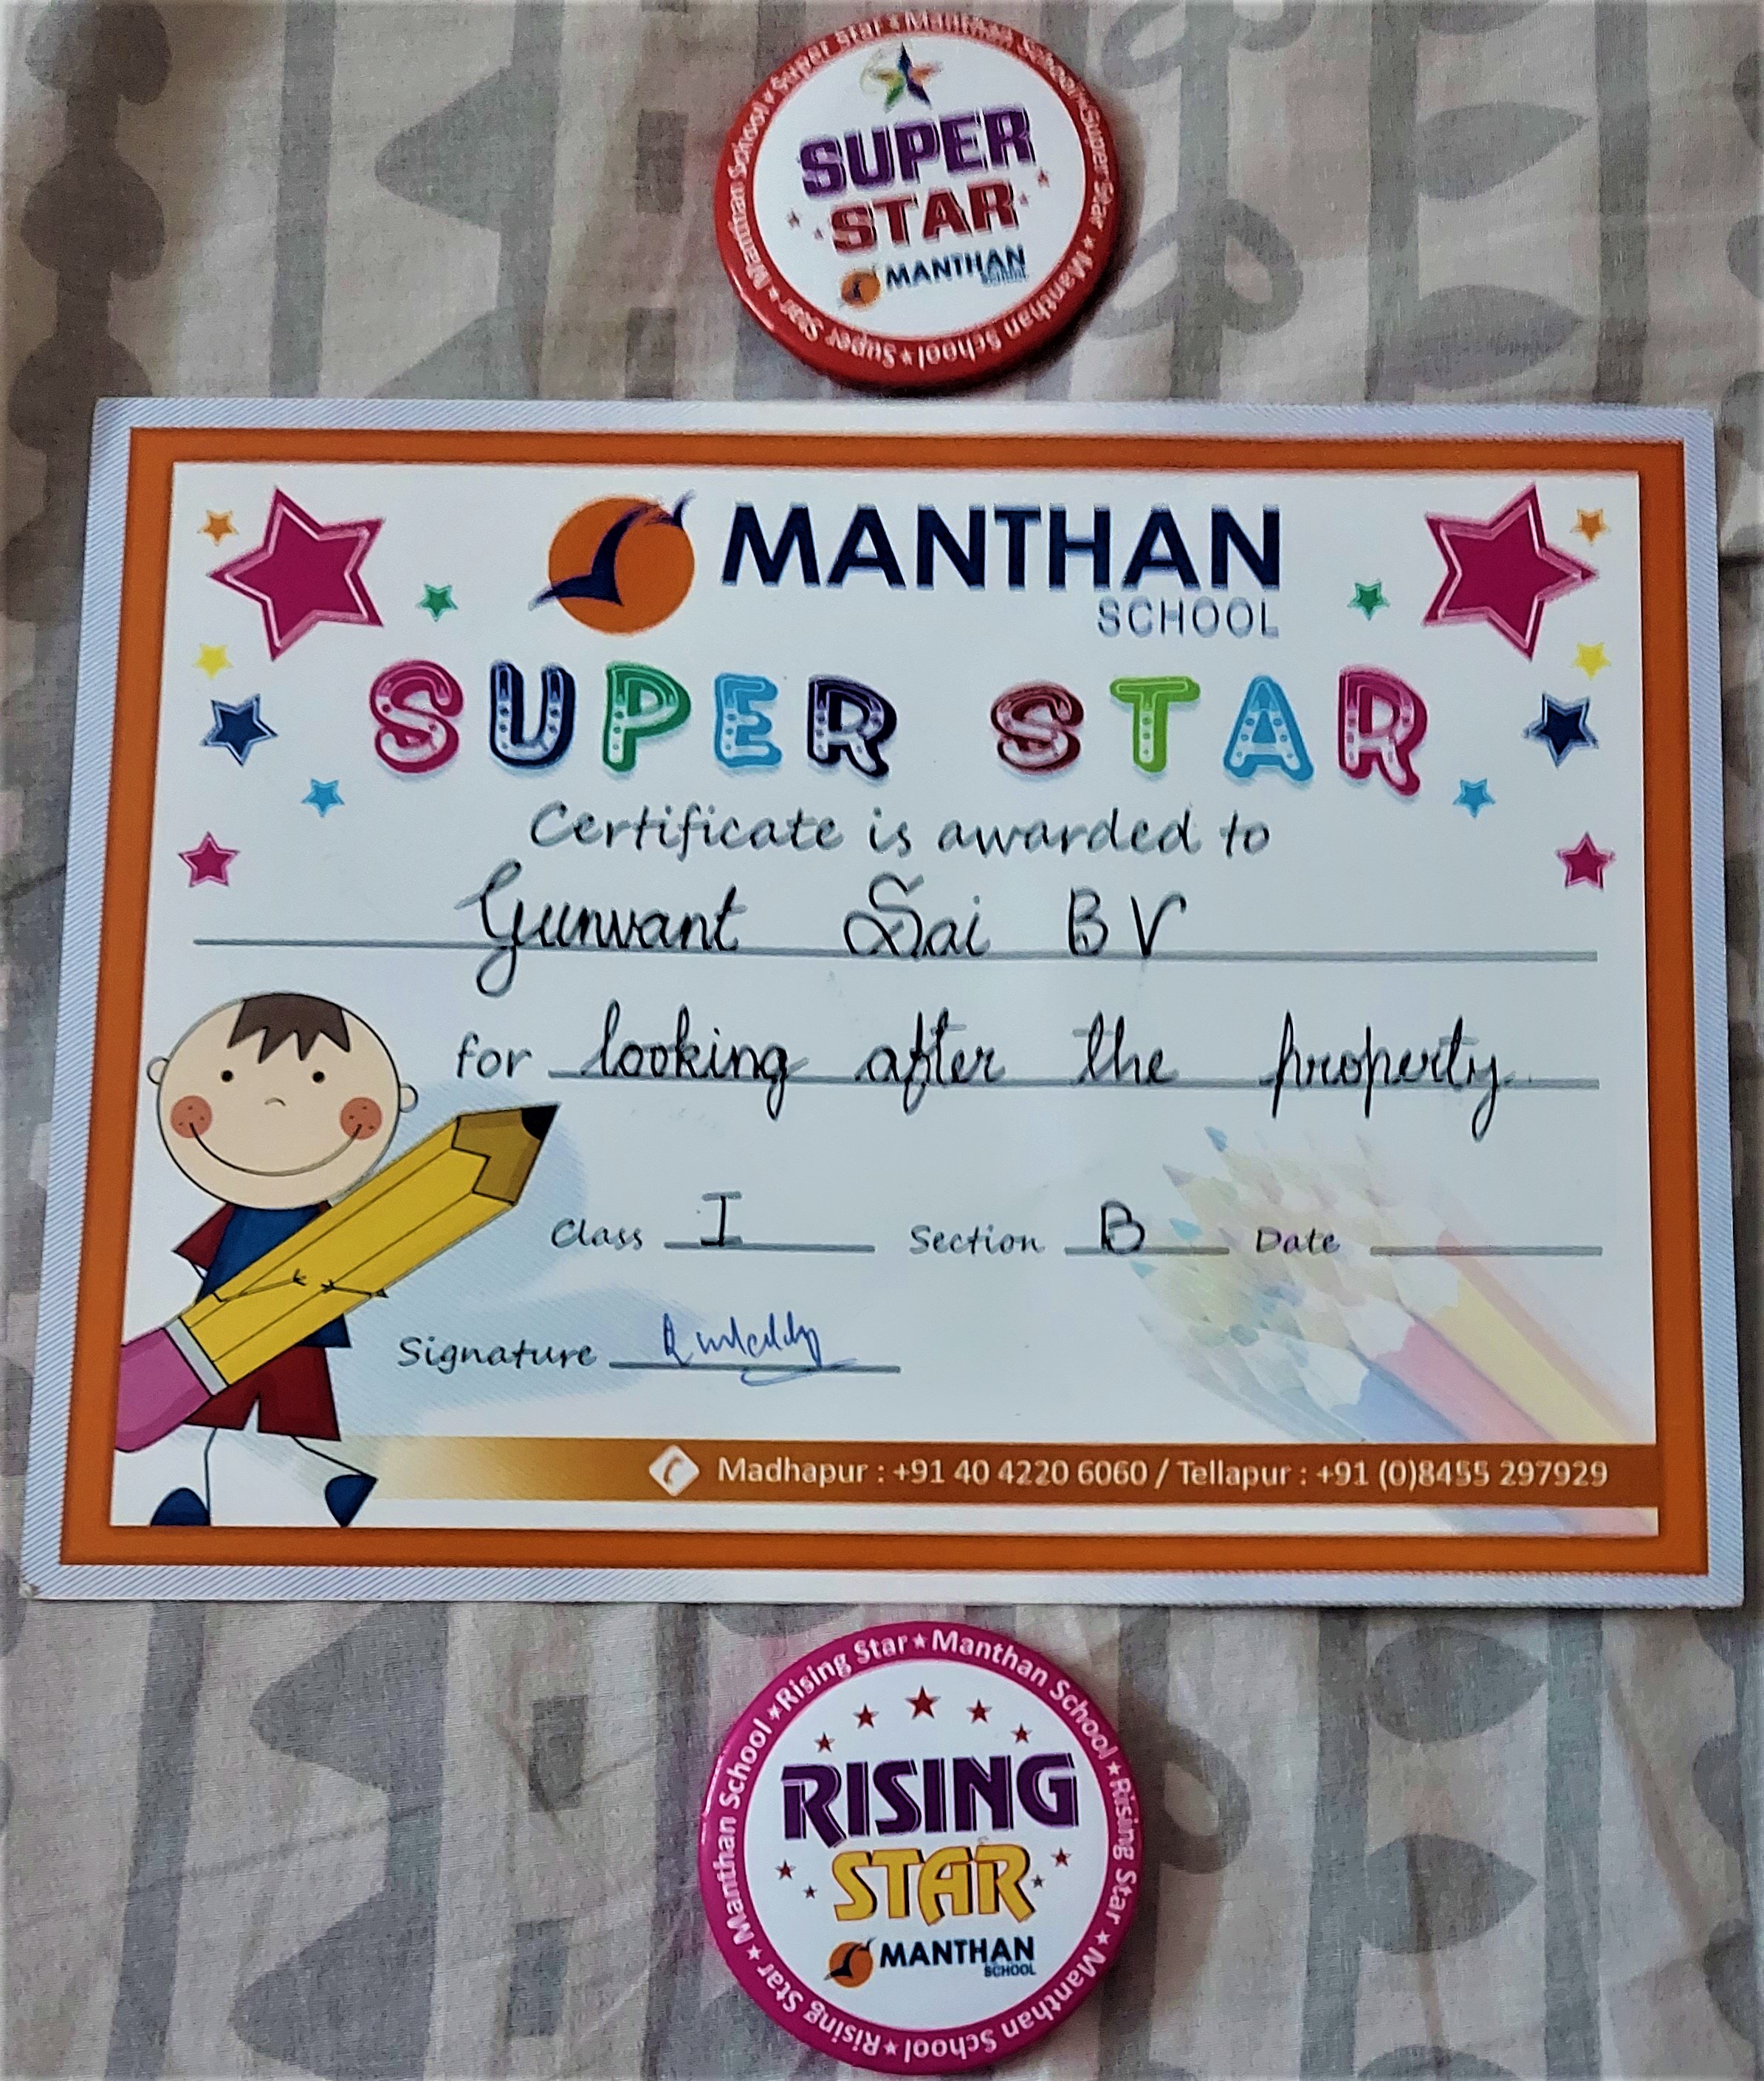 Super Star ★ Manthan School ★ Super Star ★ Manthan School ★ Super Star ★ Manthan School ★
SUPER
STAR
MANTHAN
SCHOOL
MANTHAN
SCHOOL
SUPER STAR
Certificate is awarded to
Gunwant Sai B V
for looking after the property
Class I Section B Date
Signature
Madhapur : +91 40 4220 6060 / Tellapur : +91 (0)8455 297929
Rising Star ★ Manthan School ★ Rising Star ★ Manthan School ★ Rising Star ★ Manthan School ★
RISING
STAR
MANTHAN
SCHOOL